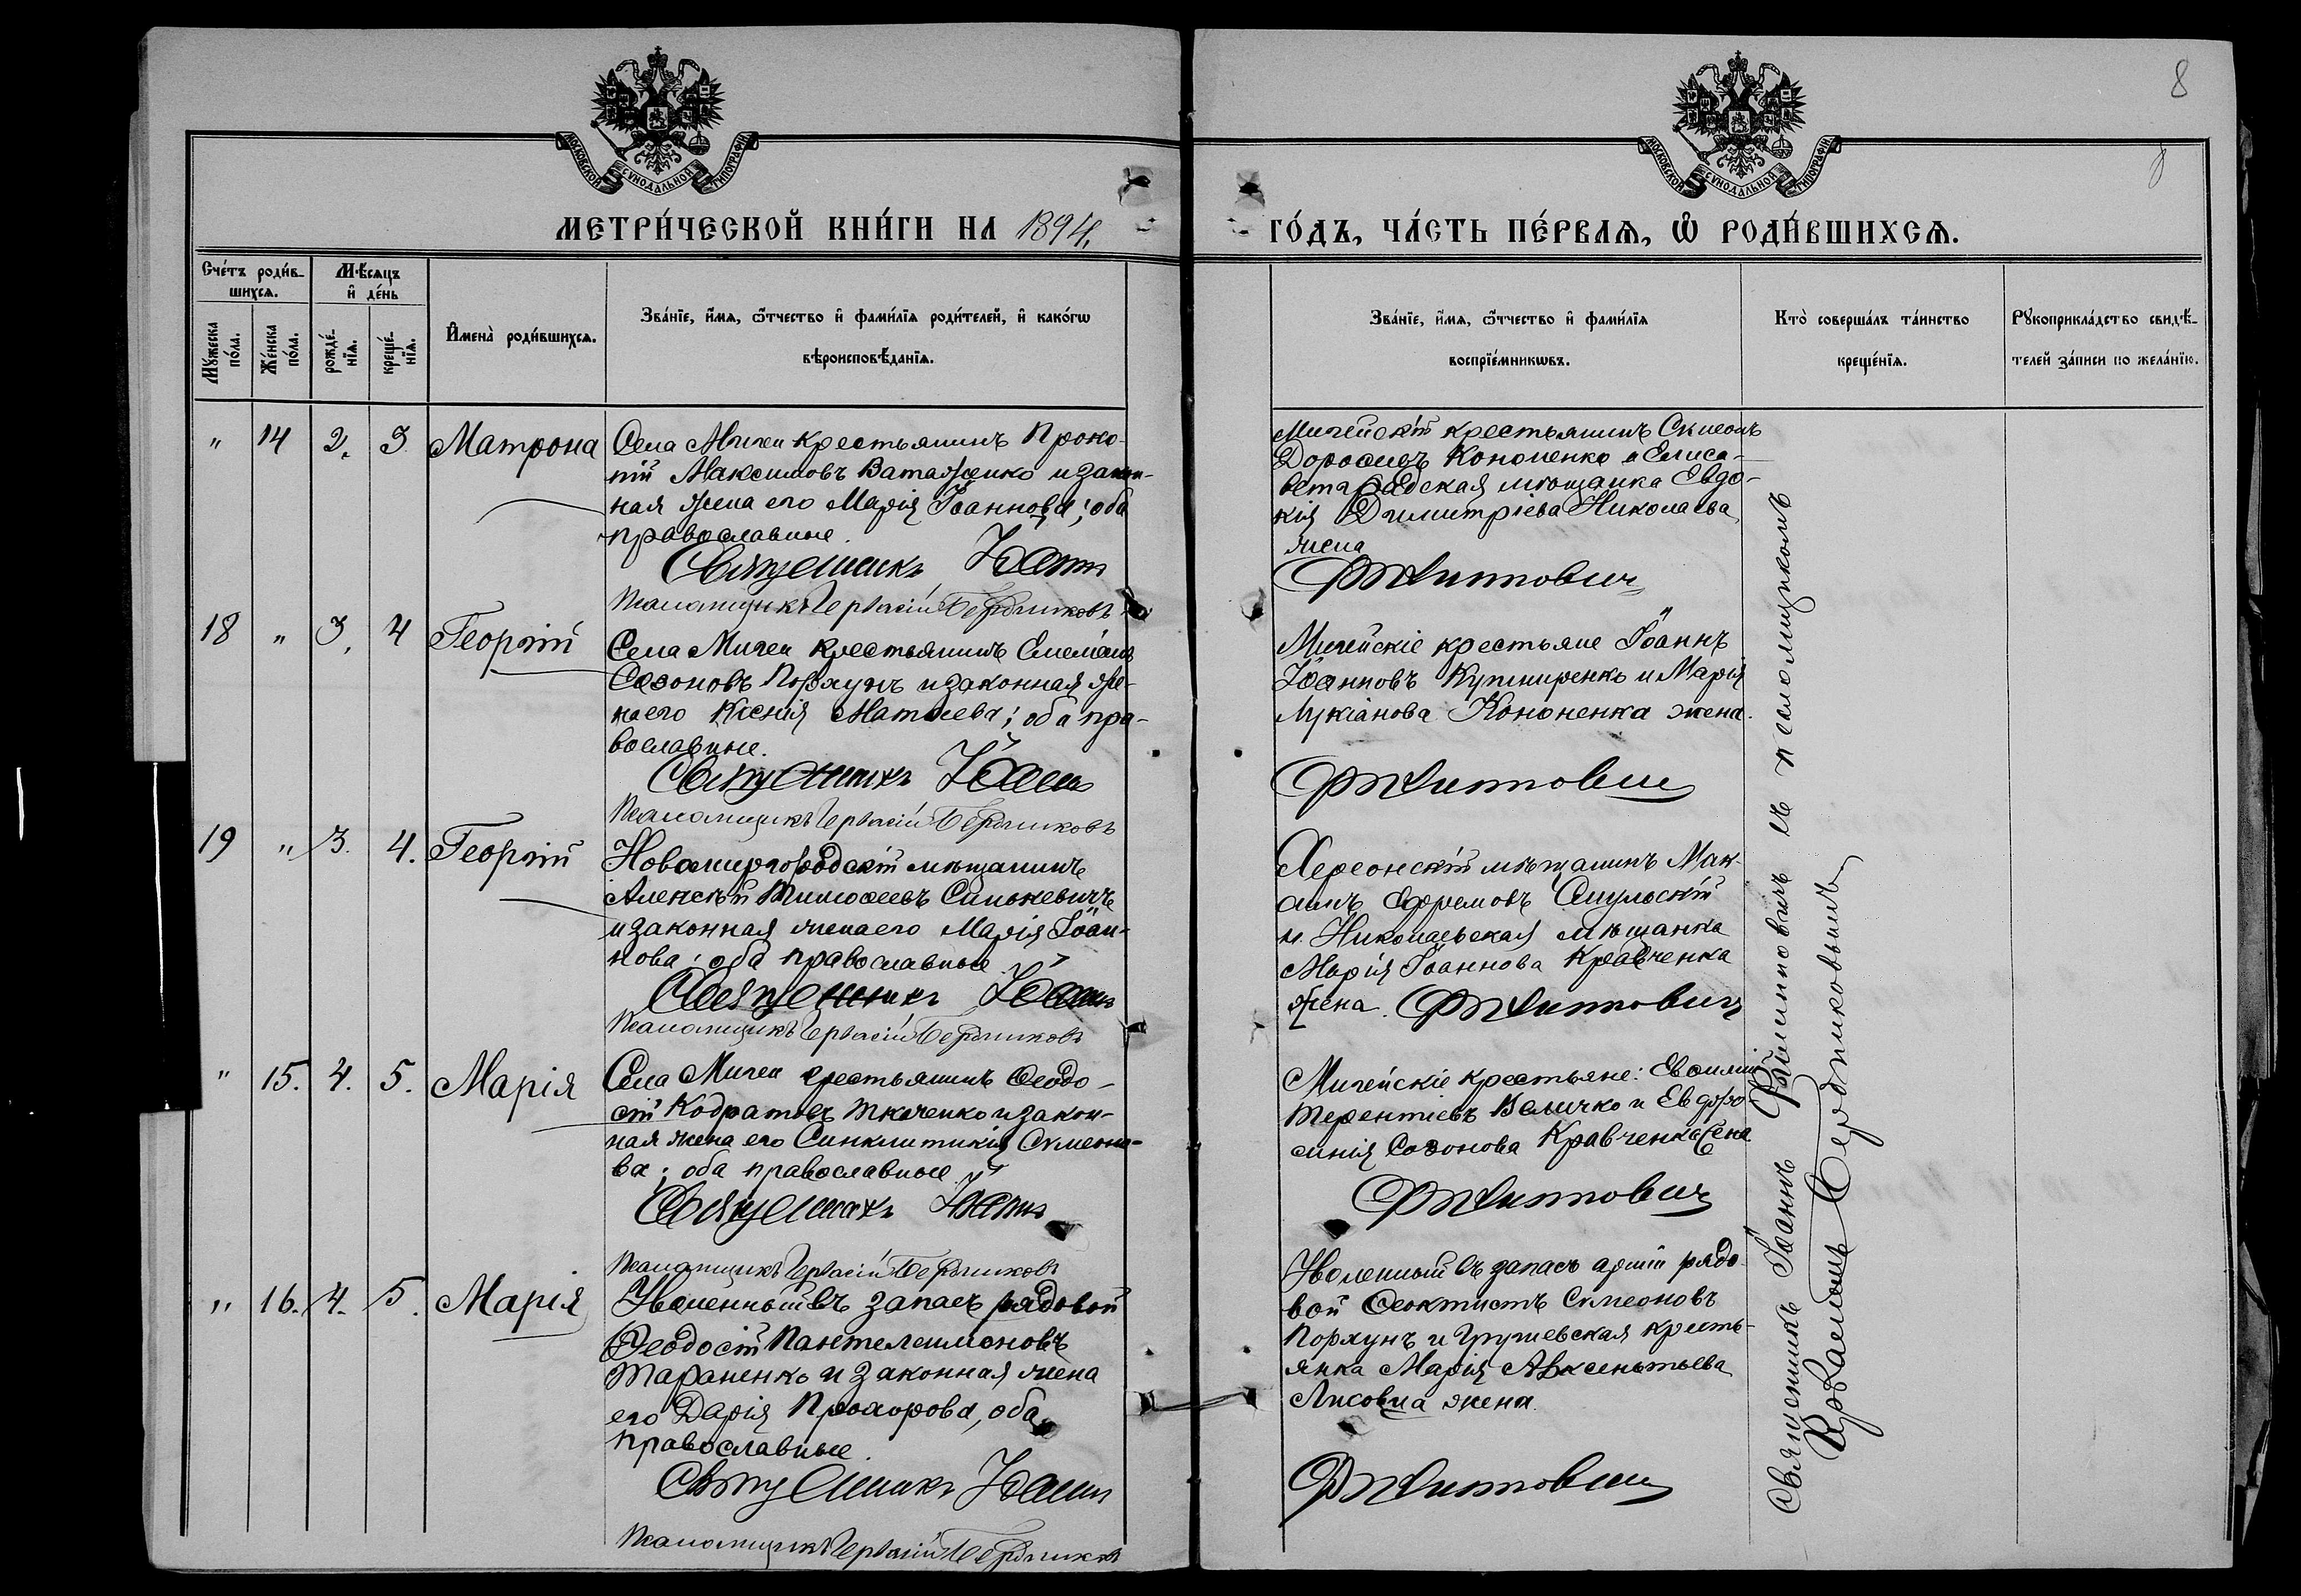 8
8
МОСКОВСКОЙ СѴНОДАЛЬНОЙ ТИПОГРАФІИ
МОСКОВСКОЙ СѴНОДАЛЬНОЙ ТИПОГРАФІИ
МЕТРИ́ЧЕСКОЙ КНИ́ГИ НА 1894.
ГО́ДЪ, ЧА́СТЬ ПЕ́РВАѦ, Ѡ҆ РОДИ́ВШИХСѦ.
Сче́тъ роди́в-
шихсѧ.
Мѣ́сѧцъ
и҆ де́нь
Мꙋ́жеска
по́ла.
Же́нска
по́ла.
рожде́-
нїѧ.
креще́-
нїѧ.
И҆мена̀ роди́вшихсѧ.
Зва́нїе, и҆́мѧ, ѻ҆́тчество и҆ фами́лїѧ роди́телей, и҆ како́гѡ
вѣроисповѣ́данїѧ.
Зва́нїе, и҆́мѧ, ѻ҆́тчество и҆ фами́лїѧ
воспрїе́мникѡвъ.
Кто̀ соверша́лъ та́инство
креще́нїѧ.
Рꙋкоприкла́дство свидѣ́-
телей за́писи по жела́нїю.
" 14 2. 3 Матрона
Села Мигеи крестьянинъ Проко-
пій Максимовъ Ватаженко и закон-
ная жена его Марія Іоаннова; оба
православные.
Священникъ Іоаннъ
Псаломщикъ Гервасій Бердниковъ
Мигейскій крестьянинъ Симеонъ
Дороѳеевъ Кононенко и Елиса-
ветградская мѣщанка Евдо-
кія Димитріева Николаева
жена
Филипповичъ
18 " 3. 4 Георгій
Села Мигеи крестьянинъ Емеліанъ
Созоновъ Порхунъ и законная же-
на его Ксенія Матѳеева; оба пра-
вославные.
Священникъ Іоаннъ
Псаломщикъ Гервасій Бердниковъ
Мигейскіе крестьяне Іоаннъ
Іоанновъ Кушниренко и Марія
Лукіанова Кононенка жена.
Филипповичъ
19 " 3. 4. Георгій
Новомиргородскій мѣщанинъ
Алексѣй Тимоѳеевъ Синькевичъ
и законная жена его Марія Іоан-
нова; оба православные
Священникъ Іоаннъ
Псаломщикъ Гервасій Бердниковъ
Херсонскій мѣщанинъ Мак-
симъ Ефремовъ
и Николаевская мѣщанка
Марія Іоаннова Кравченка
жена. Филипповичъ
" 15. 4. 5. Марія
Села Мигеи крестьянинъ Ѳеодо-
сій Кодратовъ Ткаченко и закон-
ная жена его Синклитикія Симеоно-
ва; оба православные.
Священникъ Іоаннъ
Псаломщикъ Гервасій Бердниковъ
Мигейскіе крестьяне: Евѳимій
Терентіевъ Величко и Евфро-
синія Созонова Кравченка жена
Филипповичъ
" 16. 4. 5. Марія
Уволенный въ запасъ рядовой
Ѳеодосій Пантелеимоновъ
Тараненко и законная жена
его Дарія Прохорова, оба
православные.
Священникъ Іоаннъ
Псаломщикъ Гервасій Бердниковъ
Уволенный въ запасъ арміи рядо-
вой Ѳеоктистъ Симеоновъ
Порхунъ и Грушевская кресть-
янка Марія Авксентьева
Лисовна жена.
Филипповичъ
Священникъ Іоаннъ Филипповичъ съ псаломщикомъ
Гервасіемъ Бердниковымъ